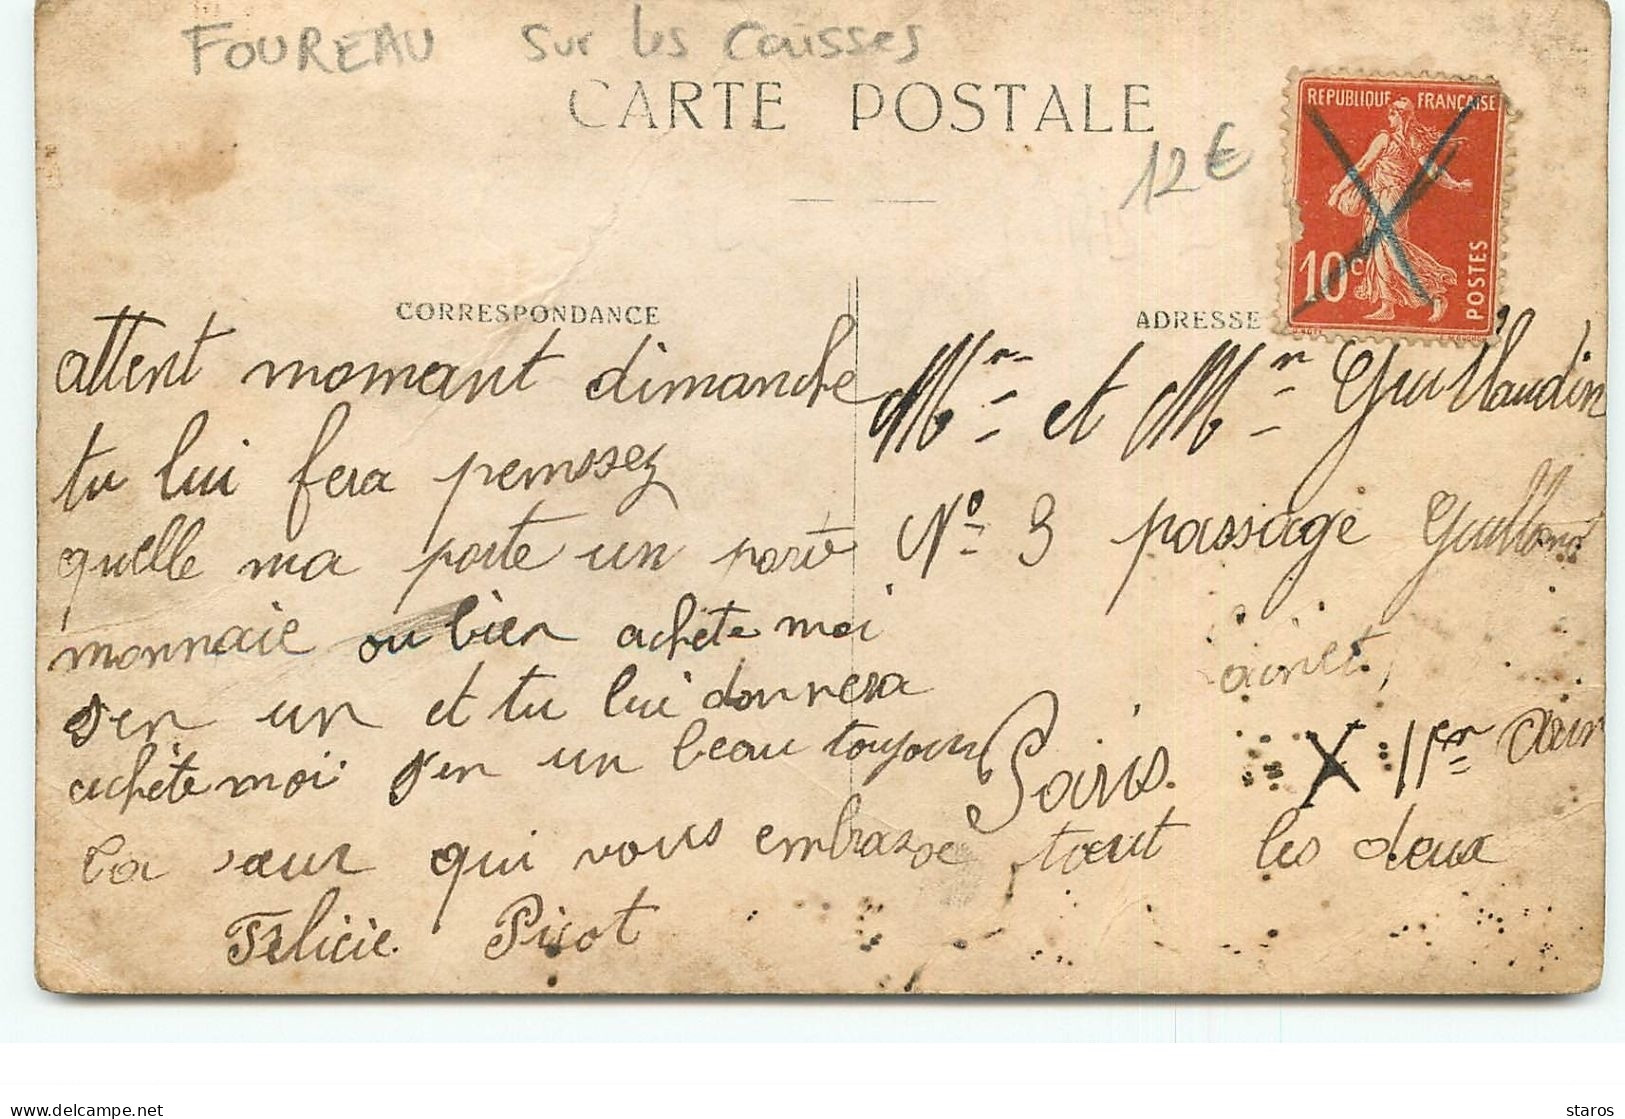 FOUREAU sur les caisses
CARTE POSTALE
12€
REPUBLIQUE FRANÇAISE
10c
POSTES
CORRESPONDANCE
ADRESSE
attent momant dimanche
tu lui fera pemssez
quelle ma porte un porte
monnaie ou bien achete moi
s'en un et tu lui donnera
achète moi s'en un beau toujours
la sœur qui vous embrasse tout les deux
Félicie Pisot
Mr et Mr Guillaudin
No 3 passage
Paris. X 11er
staros